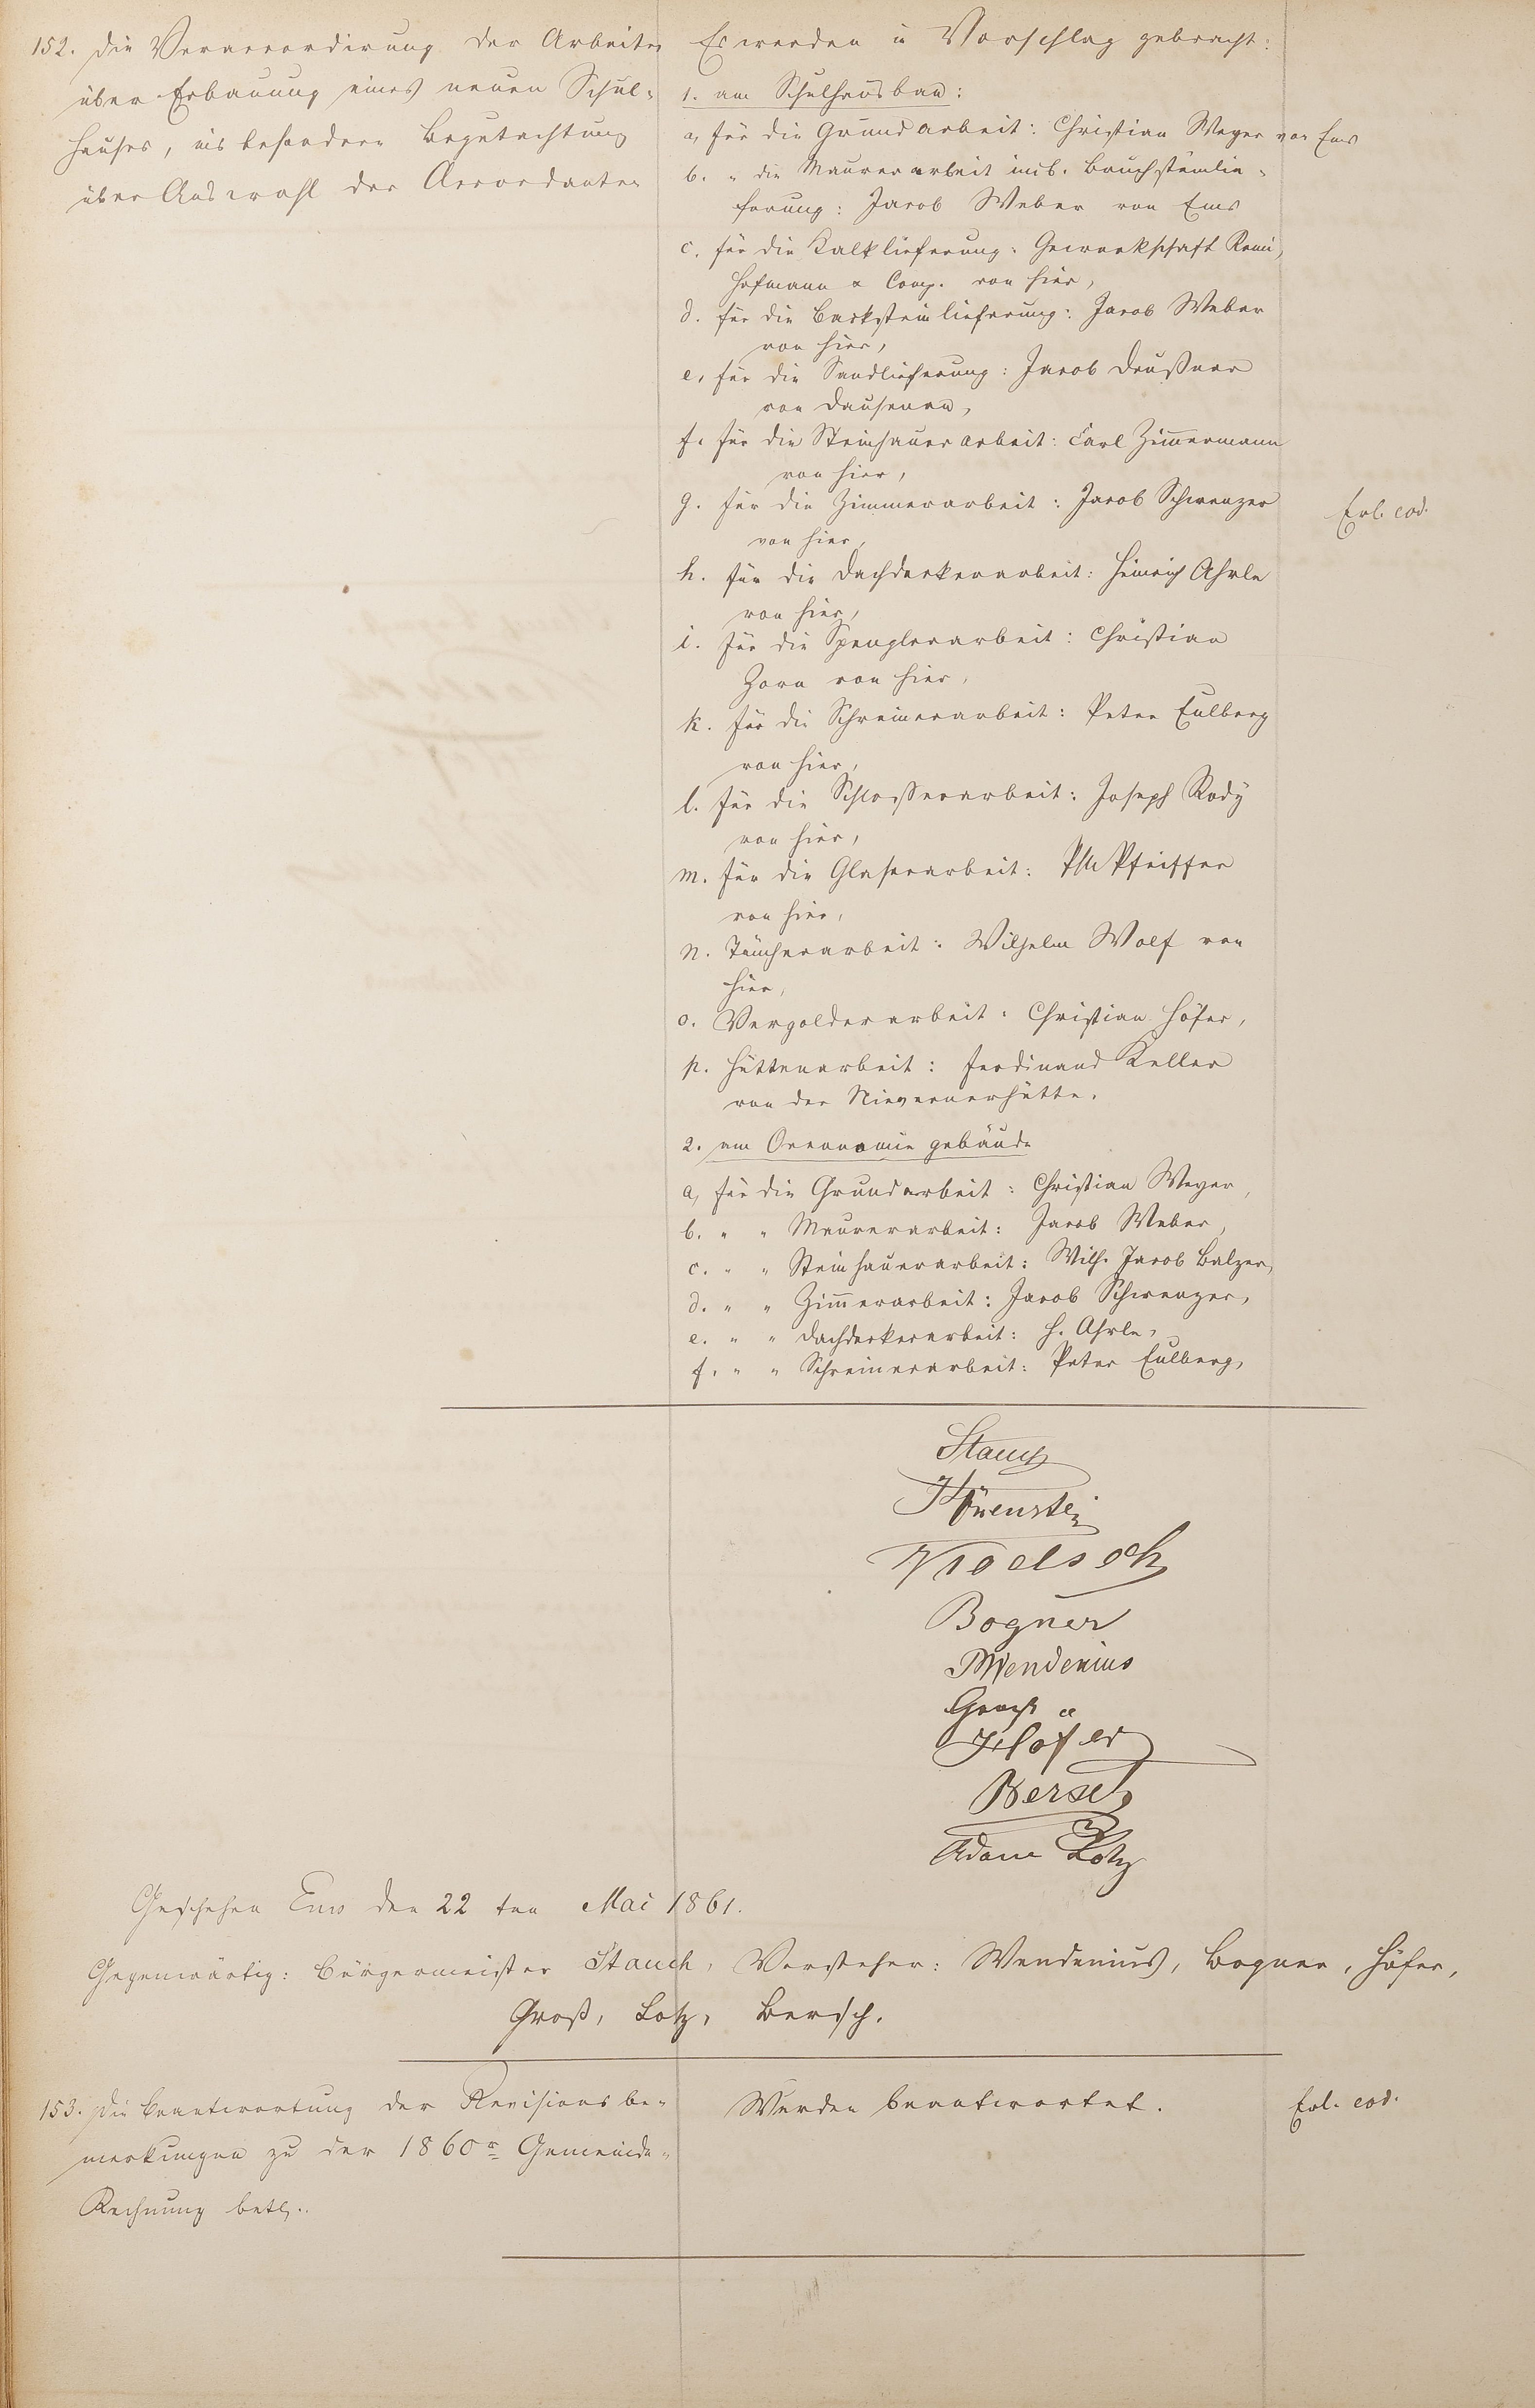 152. Die Veraccordirung der Arbeiten
über Erbauung eines neuen Schul-
hauses, insbesondere Begutachtung
über Auswahl der Accordanten
Es werden in Vorschlag gebracht:
1. am Schulhausbau:
a, für die Grundarbeit: Christian Weyer von Ems
b. " die Maurerarbeit incl. Bruchsteinlie-
ferung: Jacob Weber von Ems
c. für die Kalklieferung: Gewerkschaft Remi,
Hofmann & Comp. von hier,
d. für die Backsteinlieferung: Jacob Weber
von hier,
e, für die Sandlieferung: Jacob Deußner
von Dausenau,
f. für die Steinhauerarbeit: Carl Zimmermann
von hier,
g. für die Zimmerarbeit: Jacob Schwenzer
von hier,
Erl. eod.
h. für die Dachdeckerarbeit: Heinrich Ahrle
von hier,
i. für die Spenglerarbeit: Christian
Zorn von hier,
k. für die Schreinerarbeit: Peter Eulberg
von hier,
l. für die Schlosserarbeit: Joseph Rody
von hier,
m. für die Glaserarbeit: Ph Pfeiffer
von hier,
n. Tüncherarbeit: Wilhelm Wolf von
hier,
o. Vergolderarbeit: Christian Höfer,
p. Hüttenarbeit: Ferdinand Keller
von der Nievernerhütte.
2. am Oeconomiegebäude
a, für die Grundarbeit: Christian Weyer,
b. " " Maurerarbeit: Jacob Weber,
c. " " Steinhauerarbeit: Wilh. Jacob Balzer,
d. " " Zimmerarbeit: Jacob Schwenzer,
e. " " Dachdeckerarbeit: H. Ahrle,
f. " " Schreinerarbeit: Peter Eulberg,
Stauch
Bogner
Wendenius
Höfer
Bersch
Adam Lotz
Geschehen Ems den 22 ten Mai 1861.
Gegenwärtig: Bürgermeister Stauch, Vorsteher: Wendenius, Bogner, Höfer,
Groß, Lotz, Bersch.
153. Die Beantwortung der Revisionsbe-
merkungen zu der 1860r Gemeinde-
Rechnung betr.
Werden beantwortet.
Erl. eod.